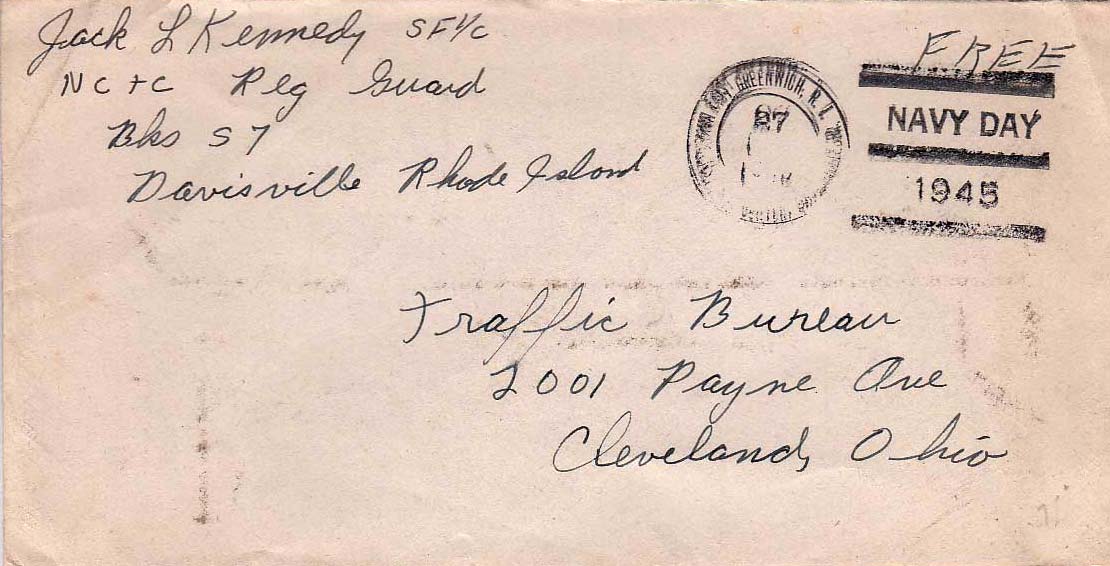 Jack L Kennedy SF1/C
NC+C Reg Guard
Bks S7
Davisville Rhode Island
FREE
EAST GREENWICH, R. I.
27
NAVY DAY
1945
Traffic Bureau
2001 Payne Ave
Cleveland, Ohio